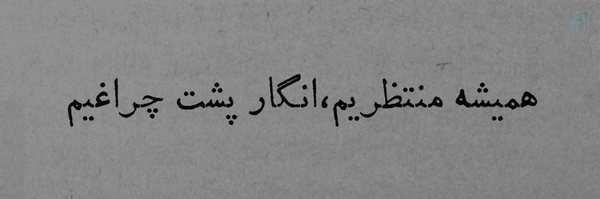 همیشه منتظریم،انگار پشت چراغیم